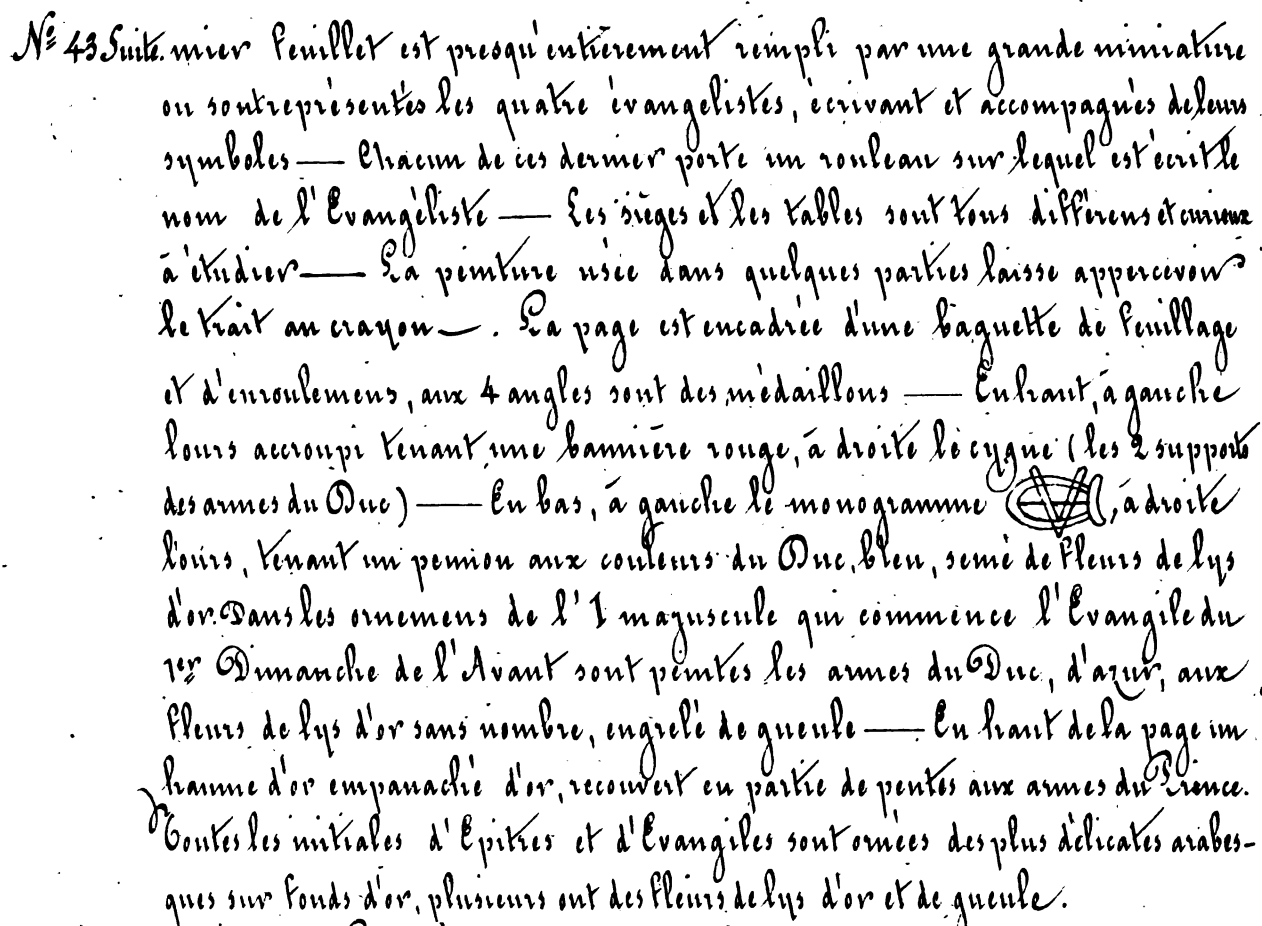 Nº 43 Suite. mier feuillet est presqu'entièrement rempli par une grande miniature
ou sont représentés les quatre évangelistes, écrivant et accompagnés de leurs
symboles — Chacun de ces dernier porte un rouleau sur lequel est écrit le
nom de l'Evangéliste — Les sièges et les tables sont tous différens et curieux
à étudier — La peinture usée dans quelques parties laisse appercevoir
le trait au crayon — . La page est encadrée d'une baguette de feuillage
et d'enroulemens, aux 4 angles sont des médaillons — En haut, à gauche
lours accroupi tenant une bannière rouge, à droite le cygne (les 2 supports
des armes du Duc) — En bas, à gauche le monogramme , à droite
l'ours, tenant un pennon aux couleurs du Duc, bleu, semé de fleurs de lys
d'or. Dans les ornemens de l'I majuscule qui commence l'Evangile du
1er Dimanche de l'Avant sont peintes les armes du Duc, d'azur, aux
fleurs de lys d'or sans nombre, engrelé de gueule — En haut de la page un
haume d'or empanaché d'or, recouvert en partie de pentes aux armes du Prince.
Toutes les initiales d'Epitres et d'Evangiles sont ornées des plus délicates arabes-
ques sur fonds d'or, plusieurs ont des fleurs de lys d'or et de gueule.